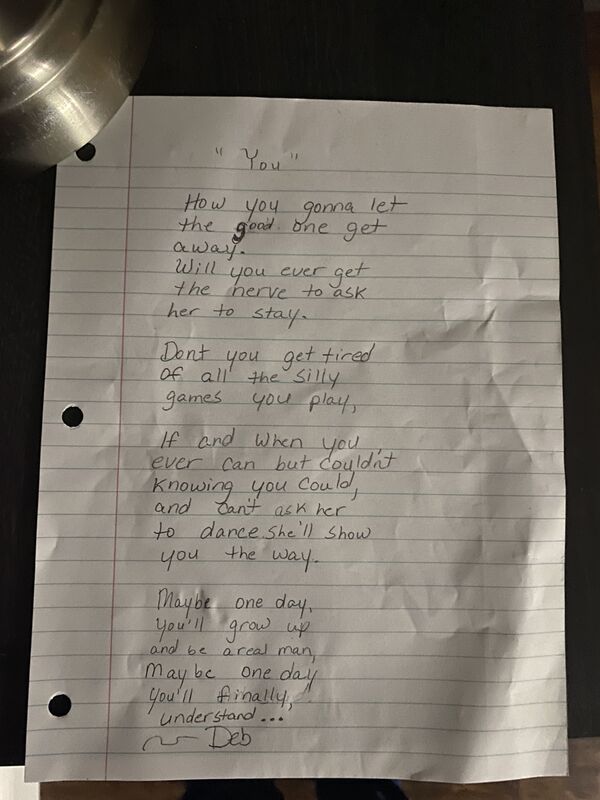 " You "
How you gonna let
the good one get
away.
Will you ever get
the nerve to ask
her to stay.
Dont you get tired
of all the silly
games you play,
If and when you,
ever can but couldn't
knowing you could,
and can't ask her
to dance she'll show
you the way.
Maybe one day,
you'll grow up
and be a real man,
Maybe one day
you'll finally,
understand...
~ Deb